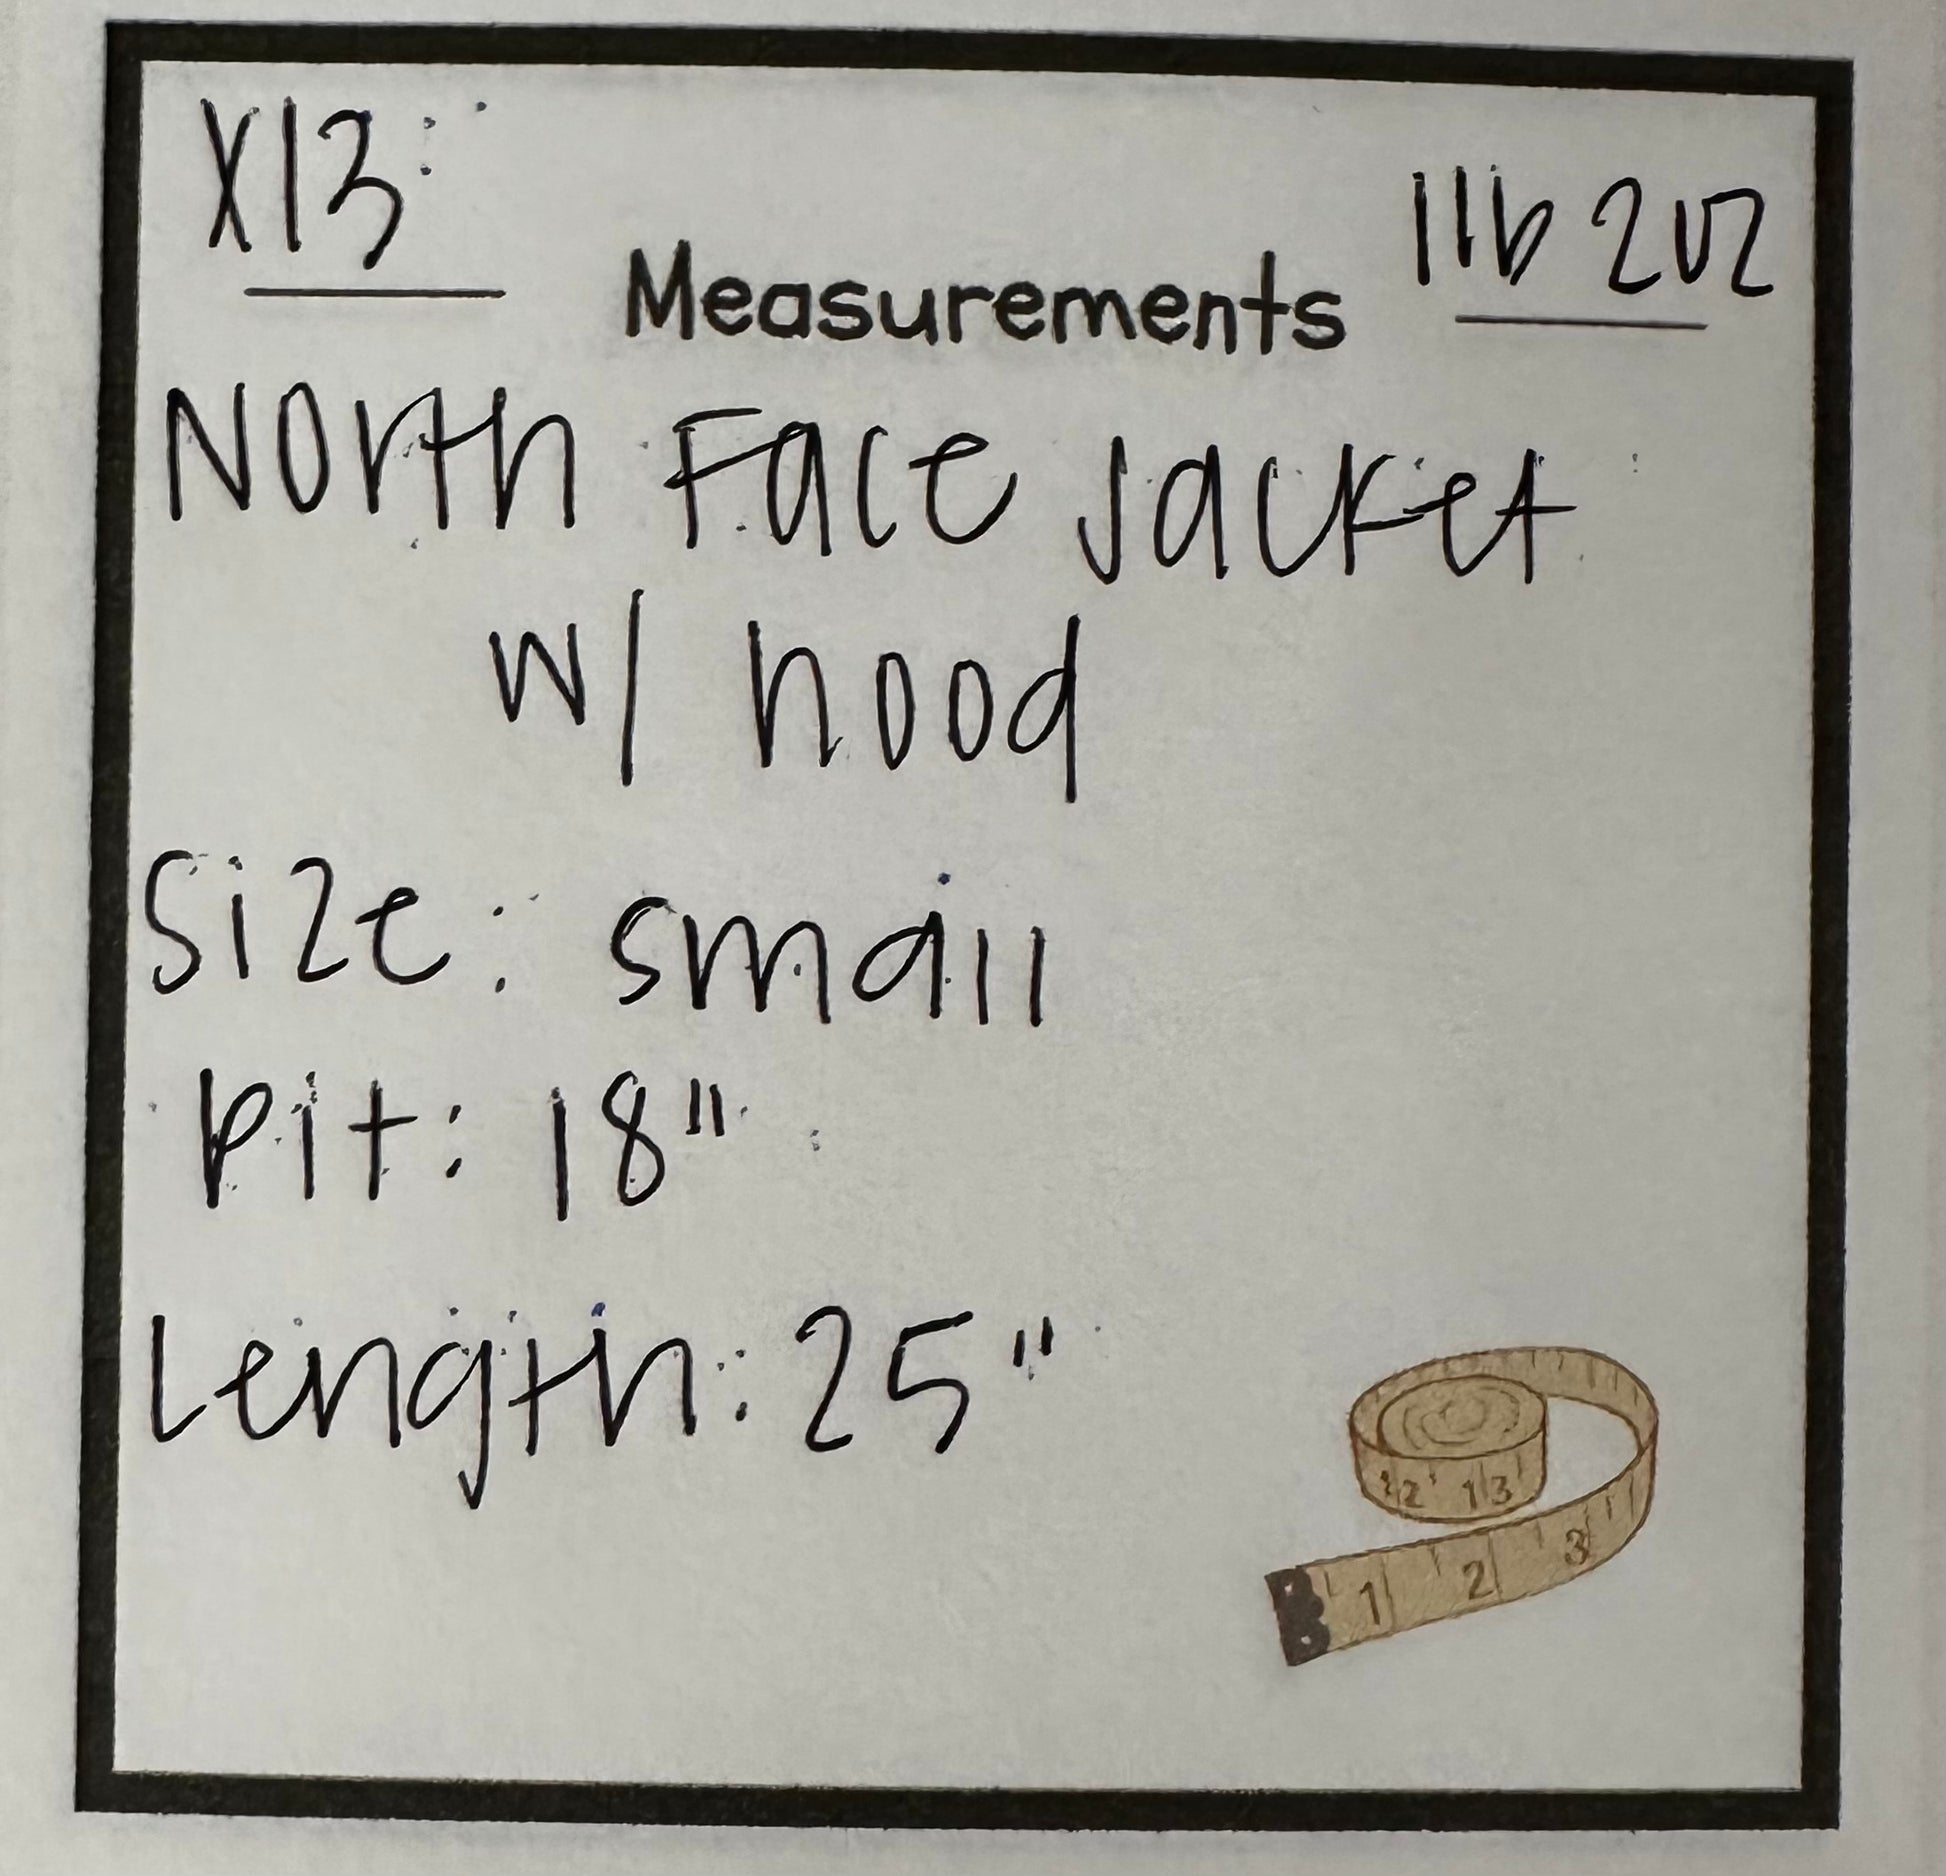 X13
1lb 2oz
Measurements
North Face Jacket
w/ hood
Size: small
Pit: 18"
Length: 25"
2 13
1 2 3